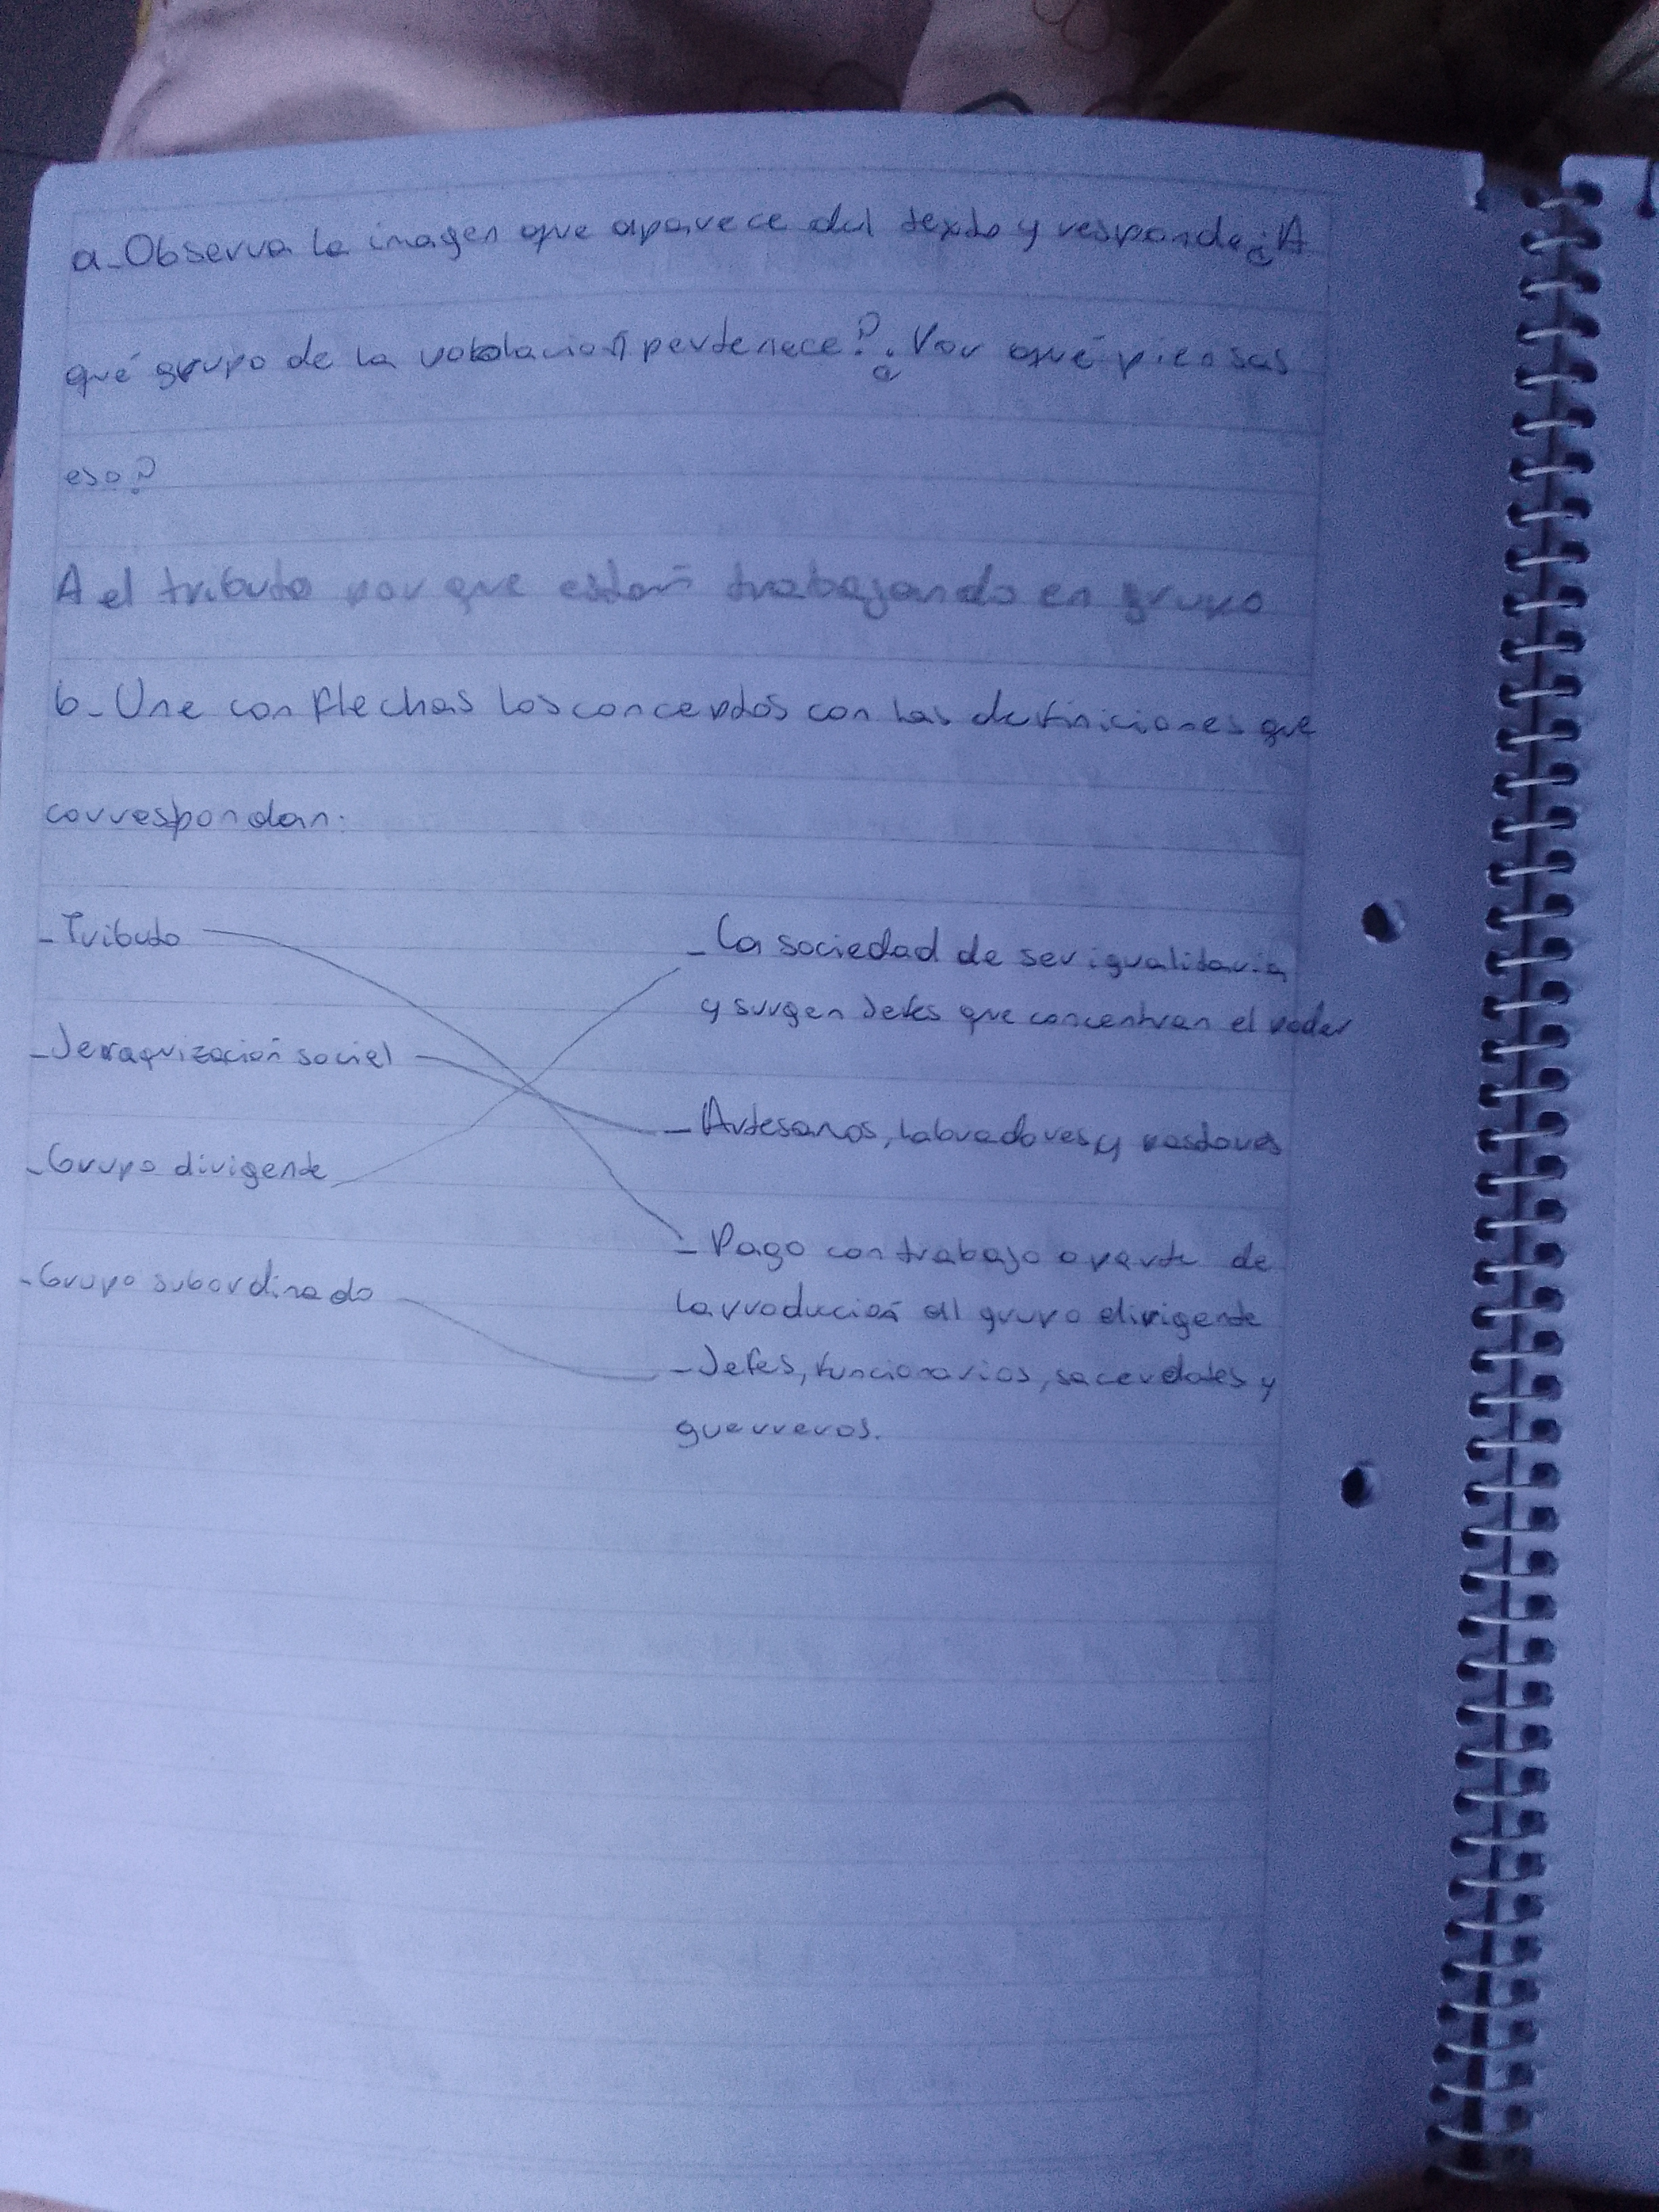 a_ Observa la imagen que aparece del texto y responde ¿A
qué grupo de la poblacion pertenece? ¿Por qué piensas
eso?
A el tributo por que estan trabajando en grupo
b_ Une con flechas los conceptos con las definiciones que
correspondan:
_Tributo
_Jeraquización social
_Grupo dirigente
_Grupo subordinado
_La sociedad de ser igualitaria
y surgen Jefes que concentran el poder
_Artesanos, labradores y pastores
_Pago con trabajo o parte de
la producción al grupo dirigente
_Jefes, funcionarios, sacerdotes y
guerreros.